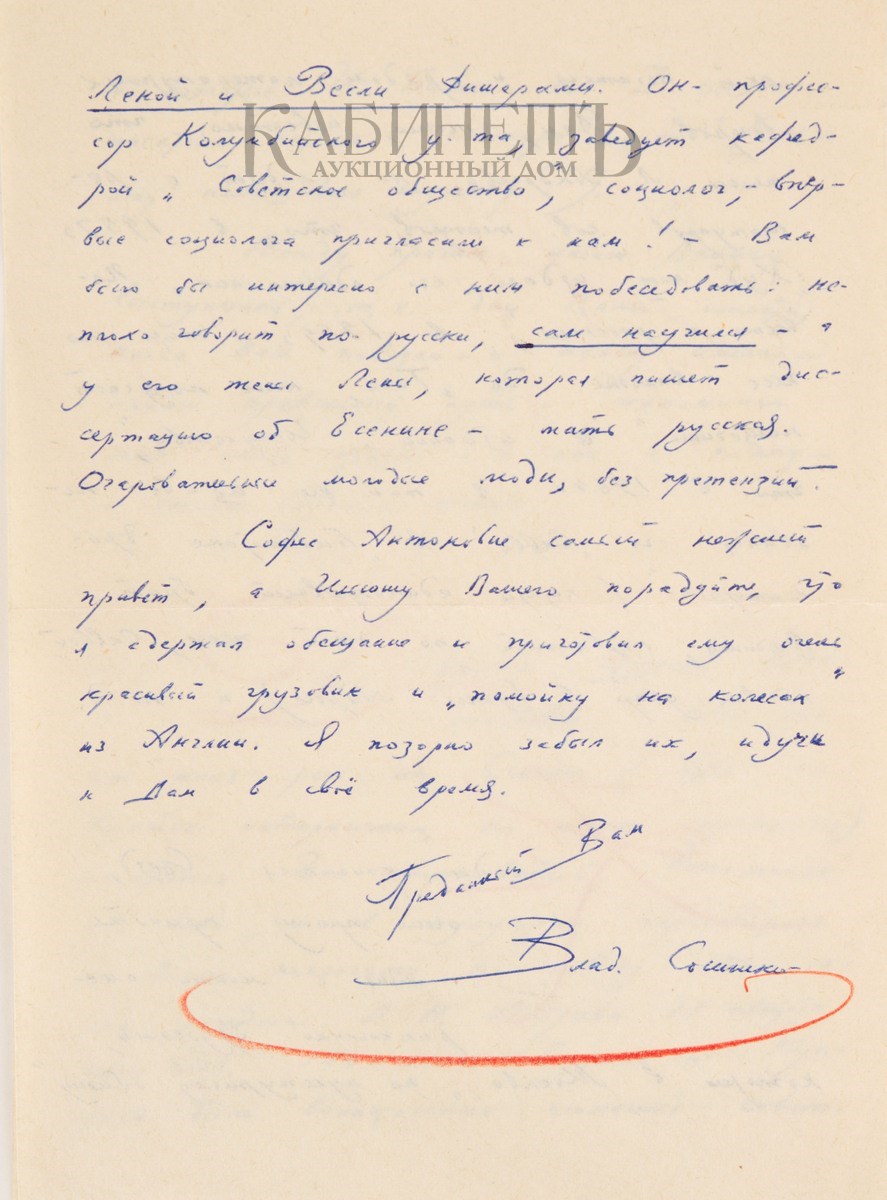 Леной и Весли Фишерами. Он- профес-
КАБИНЕТЪ
сор Колумбийского у-та, заведует кафед-
АУКЦИОННЫЙ ДОМ
рой „Советское общество", социолог, - впер-
вые социолога пригласили к нам! - Вам
было бы интересно с ним побеседовать: не-
плохо говорит по-русски, сам научился - а
у его жены Лены, которая пишет дис-
сертацию об Есенине - мать русская.
Очаровательные молодые люди, без претензий.
Софье Антоновне самый нежный
привет, а Вашего порадуйте, что
я сдержал обещание и приготовил ему очень
красивый грузовик и „помойку на колесах"
из Англии. Я позорно забыл их, идучи
к Вам в своё время.
Преданный Вам
Влад.